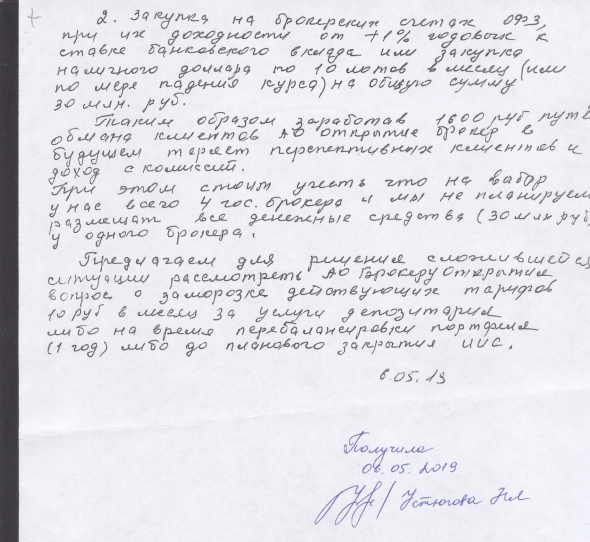 2. Закупка на брокерских счетах ОФЗ,
при их доходности от +1% годовых к
ставке банковского вклада или закупка
наличного доллара по 10 лотов в месяц (или
по мере падения курса) на общую сумму
30 млн. руб.
Таким образом заработав 1600 руб путё
обмана клиентов АО Открытие брокер в
будущем теряет перспективных клиентов и
доход с комиссий.
При этом стоит учесть что на выбор
у нас всего 4 гос. брокера и мы не планируем
размещать все денежные средства (30 млн руб
у одного брокера.
Предлагаем для решения сложившейся
ситуации рассмотреть АО Брокеру Открытия
вопрос о заморозке действующих тарифов
10 руб в месяц за услуги депозитария
либо на время перебалансировки портфеля
(1 год) либо до планового закрытия ИИС.
6.05.19
Получила
06.05.2019
Устюгова НЛ